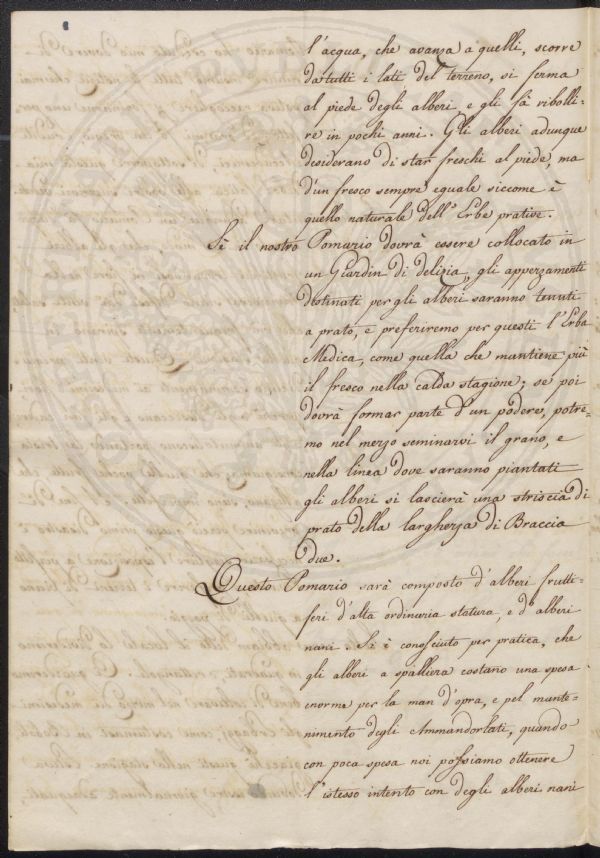 l'acqua, che avanza a quelli, scorre
da tutti i lati del terreno, si ferma
al piede degli alberi e gli fà ribolli-
re in pochi anni. Gli alberi adunque
desiderano di star freschi al piede, ma
d'un fresco sempre eguale siccome è
quello naturale dell'Erbe prative.
Sè il nostro Pomario dovrà essere collocato in
un Giardin di delizia, gli appezzamenti
destinati per gli alberi saranno tenuti
a prato, e preferiremo per questi l'Erba
Medica, come quella che mantiene più
il fresco nella calda stagione; se poi
dovrà formar parte d'un podere, potre-
mo nel mezzo seminarvi il grano, e
nella linea dove saranno piantati
gli alberi si lascierà una striscia di
prato della larghezza di Braccia
due.
Questo Pomario sarà composto d'alberi frutti-
feri d'alta ordinaria statura, e d'alberi
nani. Si è conosciuto per pratica, che
gli alberi a spalliera costano una spesa
enorme per la man d'opra, e pel mante-
nimento degli Ammandorlati, quando
con poca spesa noi possiamo ottenere
l'istesso intento con degli alberi nani